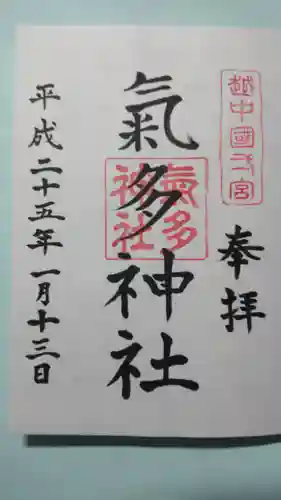 越中國弌宮
奉拝
氣多神社
氣多
神社
平成二十五年一月十三日